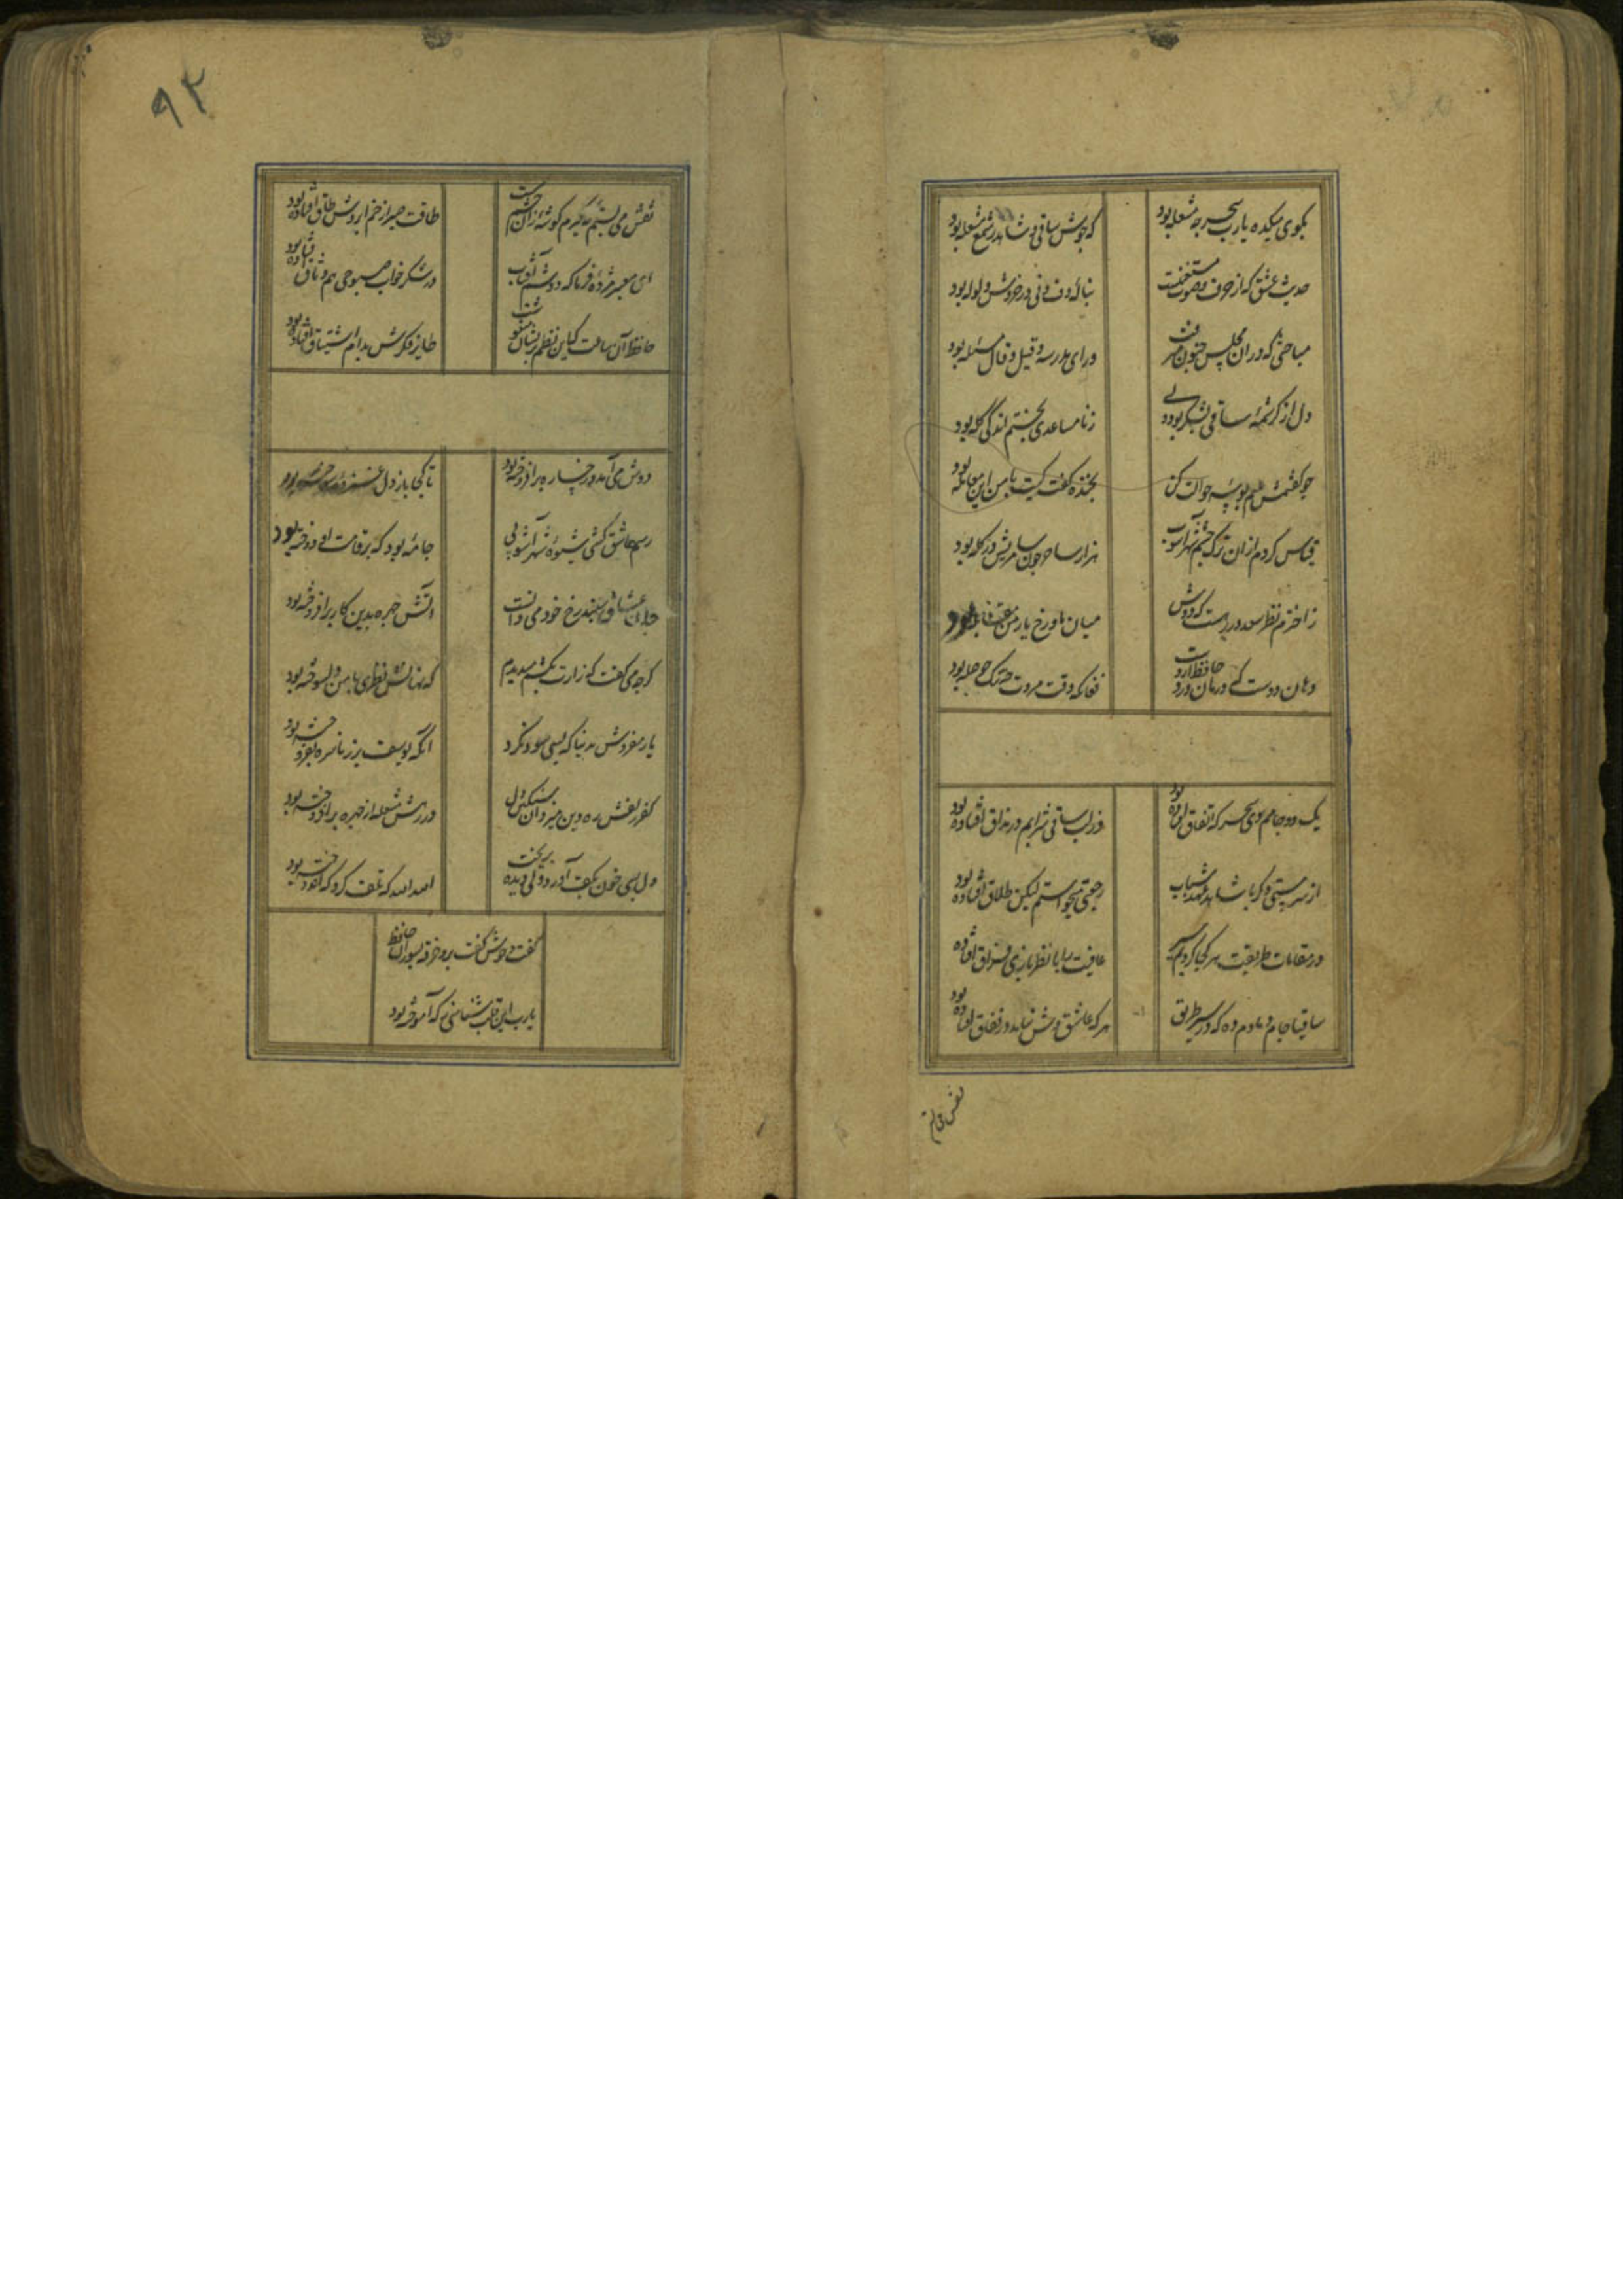 بکوی میکده یارب سحر چه مشغله بود
که جوش ساقی و شاهد و شمع مشعله بود
حدیث عشق که از حرف و صوت مستغنیست
بنالهٔ دف و نی در خروش و ولوله بود
مباحثی که در ان مجلس جنون میرفت
ورای مدرسه و قیل و قال مسئله بود
دل از کرشمهٔ ساقی بشکر بود ولی
ز نا مساعدی بختم اندکی کله بود
بخنده کفت کیت با من این معامله بود
قیاس کردم از ان ترک چشم شهراشوب
هزار ساحر چون سامریش در کله بود
ز اخترم نظر سعد در رهست که دوش
میان ماه و رخ یار من مقابله بود
دهان دوست که درمان درد حافظ دارد
فغان که وقت مروت چه تنک حوصله بود
یک دو جامم دی سحرکه اتفاق افتاده بود
وز لب ساقی شرابم در مذاق افتاده بود
از سر مستی دکر با شاهد عهد شباب
رجعتی میخواستم لیکن طلاق افتاده بود
در مقامات طریقت هر کجا کردیم سیر
عافیت را با نظر بازی فراق افتاده
ساقیا جام دمادم ده که در سیر طریق
هر که عاشق وش نیامد در نفاق افتاده بود
نقش می بستم
۹۲
نقش می بستم که کیرم کوشهٔ زان چشم مست
طاقت صبر از خم ابروش طاق افتاده بود
ای معبر مژدهٔ فرما که دوشم آفتاب
در شکر خواب صبوحی هم وثاق افتاده بود
حافظ آن ساعت که این نظم پریشان می نوشت
طایر فکرش بدام اشتیاق افتاده بود
دوش می آمد و رخساره بر افروخته بود
تا کجا باز دل غمزدهٔ سوخته بود
رسم عاشق کشی و شیوهٔ شهر آشوبی
جامهٔ بود که بر قامت او دوخته بود
جان عشاق سپند رخ خود می دانست
واتش چهره بدین کار برافروخته بود
کرچه می کفت که زارت بکشم میدیدم
که نهانش نظری با من دلسوخته بود
یار مفروش بدنیا که بسی سود نکرد
انکه یوسف بزر ناسره بفروخته بود
کفر زلفش ره دین میزد و آن سنکین دل
در رهش مشعله از چهره برافروخته بود
دل بسی خون بکف آورد ولی دیده بریخت
الله الله که تلف کرد و که اندوخته بود
کفت و خوش کفت برو خرقه بسوزان حافظ
یارب این قلب شناسی ز که آموخته بود